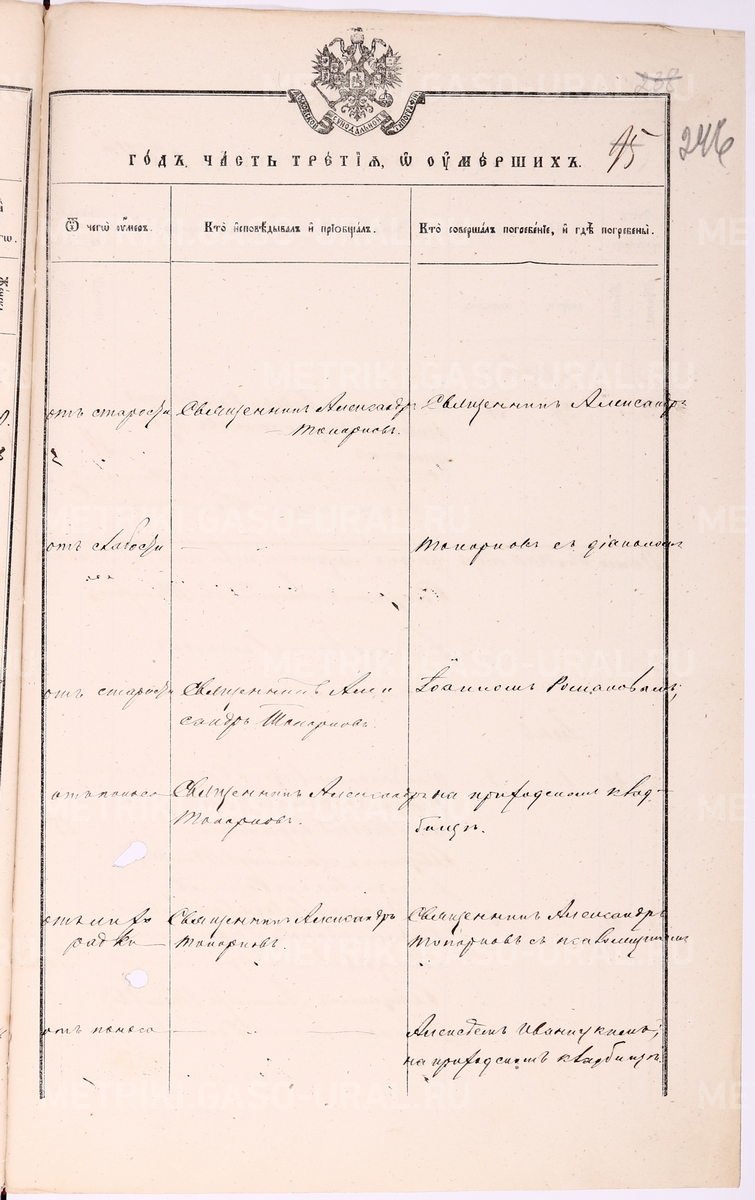 238
246
95
ГОДЪ, ЧАСТЬ ТРЕТІѦ, Ѿ ОУМЕРШИХЪ.
Ѿ чегѡ оумеръ.
Кто исповѣдывалъ и пріобщалъ.
Кто совершалъ погребеніе, и гдѣ погребены.
отъ старости
Священникъ Александръ
Топорковъ.
Священникъ Александръ
отъ слабости
Топорковъ съ діакономъ
отъ старости
Священникъ Алек
сандръ Топорковъ.
Іоанномъ Романовымъ;
отъ поноса
Священникъ Александръ
Топорковъ.
на приходскомъ клад-
бищѣ.
отъ лихо
радки
Священникъ Александръ
Топорковъ.
Священникъ Александръ
Топорковъ съ псаломщикомъ
отъ поноса
на приходскомъ кладбищѣ.